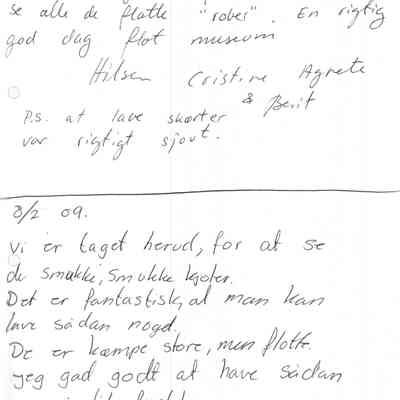 se alle de flotte "rober". En rigtig
god dag flot museum
Hilsen Cristine Agnete
& Berit
P.S. at lave skørter
var rigtigt sjovt.
8/2 09.
Vi er taget herud, for at se
de smukke, smukke kjoler.
Det er fantastisk, at man kan
lave sådan noget.
De er kæmpe store, men flotte.
jeg gad godt at have sådan